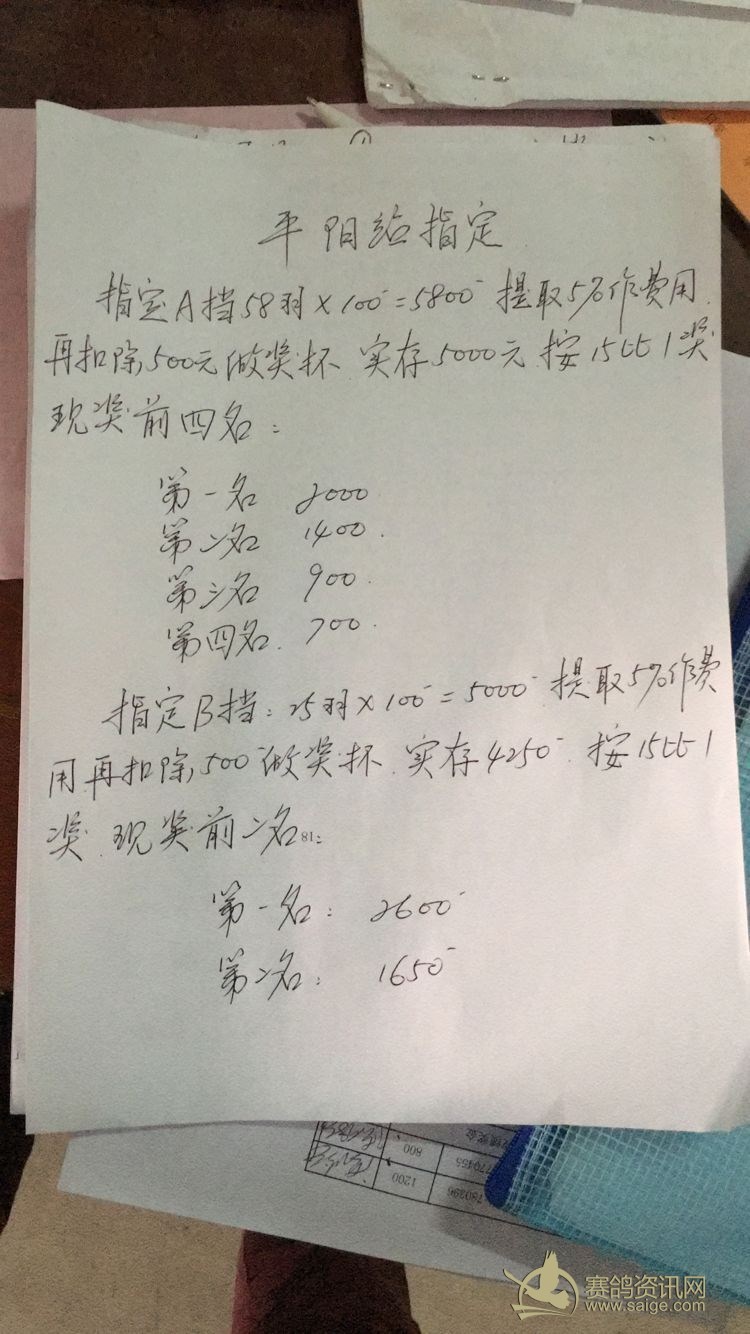 平阳站指定
指定A挡58羽×100-=5800- 提取5%作费用.
再扣除500元做奖杯 实存5000元 按15比1奖
现奖前四名:
第一名 2000
第二名 1400.
第三名 900.
第四名. 700.
指定B挡:25羽×100-=5000- 提取5%作费
用再扣除500-做奖杯.实存4250- 按15比1
奖.现奖前二名:
18
第一名: 2600-
第二名: 1650-
800
770455
1200
780396
赛鸽资讯网
www.saige.com